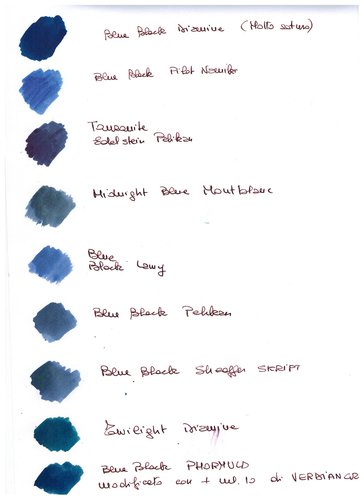 Blue Black Diamine (Molto saturo)
Blue Black Pilot Namiki
Tanzanite
Edelstein Pelikan
Midnight Blue Montblanc
Blue
Black Lamy
Blue Black Pelikan
Blue Black Sheaffer SKRIPT
Twilight Diamine
Blue Black PHORMULO
modificato con + ml. 10 di VERDIANGR